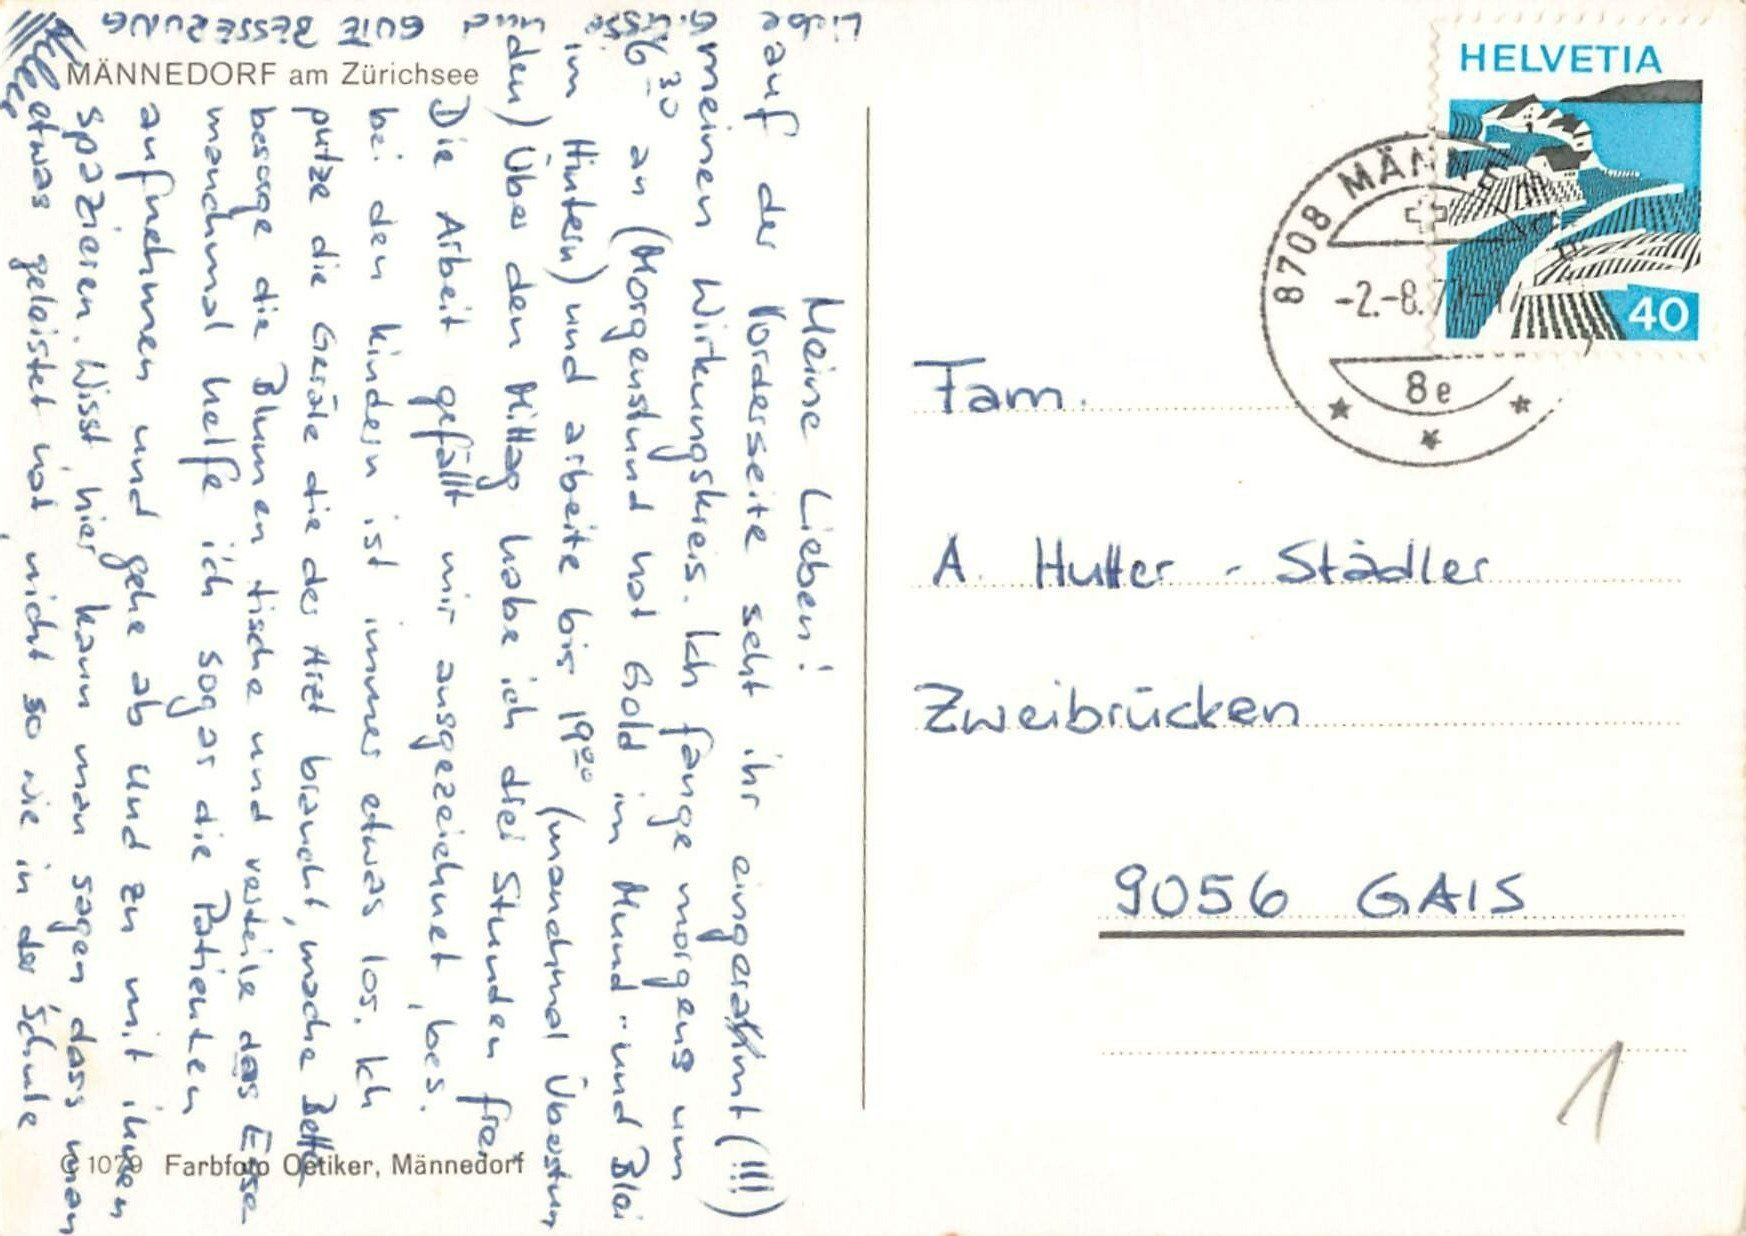 MÄNNEDORF am Zürichsee
HELVETIA
40
8708 MÄNNE
-2.-8.7
8e
Meine Lieben!
auf der Vorderseite seht ihr eingerahmt (!!!)
meinen Wirkungskreis. Ich fange morgens um
6³⁰ an (Morgenstund hat Gold im Mund - und Blei
im Hintern) und arbeite bis 19⁰⁰ (manchmal Überstun
den) Über den Mittag habe ich drei Stunden frei
Die Arbeit gefällt mir ausgezeichnet, bes.
bei den Kindern ist immer etwas los. Ich
putze die Geräte die der Arzt braucht, mache Bette
besorge die Blumen tische und verteile das Esse
manchmal helfe ich sogar die Patienten
aufnehmen und gehe ab und zu mit ihnen
spazieren. Wisst, hier kann man sagen dass man
etwas geleistet hat, nicht so wie in der Schule
Liebe Grüsse und GUTE BESSERUNG
Fam.
A. Hutter - Städler
Zweibrücken
9056 GAIS
1
1079 Farbfoto Oetiker, Männedorf